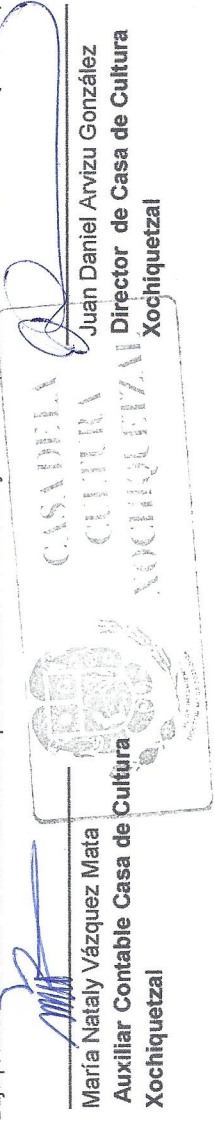 María Nataly Vázquez Mata
Auxiliar Contable Casa de Cultura
Xochiquetzal
CASA DE LA
CULTURA
XOCHIQUETZAL
Juan Daniel Arvizu González
Director de Casa de Cultura
Xochiquetzal